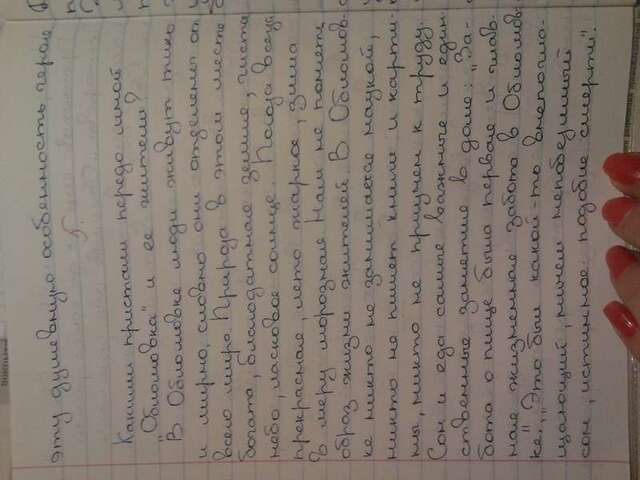 эту душевную особенность героя
Какими пристали передо мной
"Обломовка" и ее жители?
"В Обломовке люди живут тихо
и мирно, словно они отделены от
всего мира Природа в этом месте
богата, благодатные земли, чистое
небо, ласковое солнце. Погода всегда
прекрасная, лето жаркое, зима
в меру морозная Нам не понять
образ жизни жителей В Обломов-
ке никто не занимается наукой,
никто не пишет книги и карти-
ны, никто не приучен к труду.
Сон и еда самые важные и един
ственные занятие в доме: "За-
бота о пище была первая и глав
ная жизненная забота в Обломов
ке", "Это был какой-то всепогло-
щающий, ничем непобедимый
сон, истинное подобие смерти".